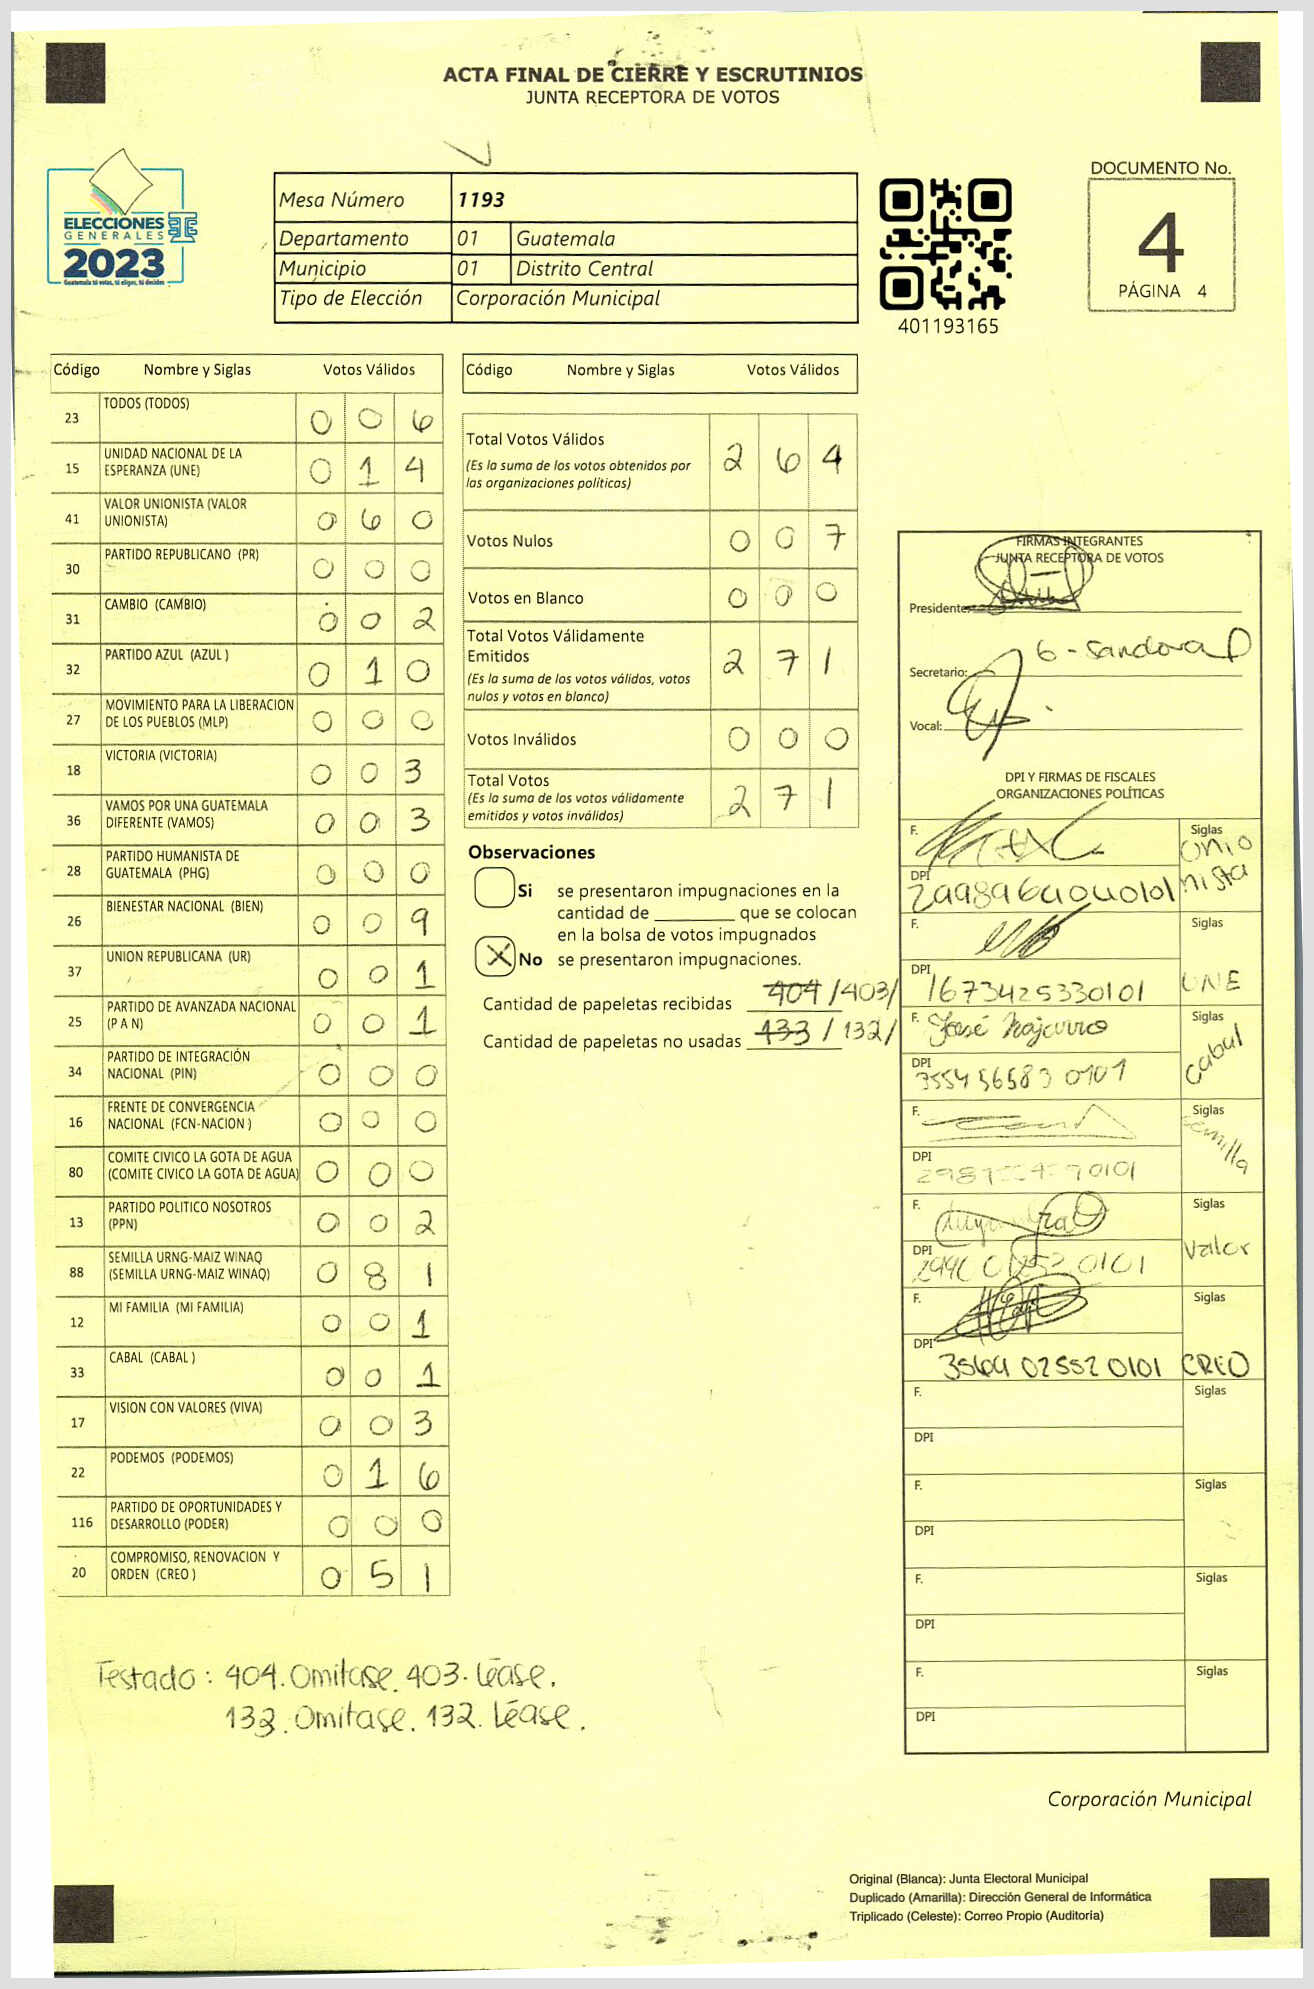 ACTA FINAL DE CIERRE Y ESCRUTINIOS
JUNTA RECEPTORA DE VOTOS
ELECCIONES
GENERALES
2023
Guatemala tú votas, tú eliges, tú decides
Mesa Número 1193
Departamento 01 Guatemala
Municipio 01 Distrito Central
Tipo de Elección Corporación Municipal
401193165
DOCUMENTO No.
4
PÁGINA 4
Código Nombre y Siglas Votos Válidos
23 TODOS (TODOS) 0 0 6
15 UNIDAD NACIONAL DE LA ESPERANZA (UNE) 0 1 4
41 VALOR UNIONISTA (VALOR UNIONISTA) 0 6 0
30 PARTIDO REPUBLICANO (PR) 0 0 0
31 CAMBIO (CAMBIO) 0 0 2
32 PARTIDO AZUL (AZUL ) 0 1 0
27 MOVIMIENTO PARA LA LIBERACION DE LOS PUEBLOS (MLP) 0 0 0
18 VICTORIA (VICTORIA) 0 0 3
36 VAMOS POR UNA GUATEMALA DIFERENTE (VAMOS) 0 0 3
28 PARTIDO HUMANISTA DE GUATEMALA (PHG) 0 0 0
26 BIENESTAR NACIONAL (BIEN) 0 0 9
37 UNION REPUBLICANA (UR) 0 0 1
25 PARTIDO DE AVANZADA NACIONAL (P A N) 0 0 1
34 PARTIDO DE INTEGRACIÓN NACIONAL (PIN) 0 0 0
16 FRENTE DE CONVERGENCIA NACIONAL (FCN-NACION ) 0 0 0
80 COMITE CIVICO LA GOTA DE AGUA (COMITE CIVICO LA GOTA DE AGUA) 0 0 0
13 PARTIDO POLITICO NOSOTROS (PPN) 0 0 2
88 SEMILLA URNG-MAIZ WINAQ (SEMILLA URNG-MAIZ WINAQ) 0 8 1
12 MI FAMILIA (MI FAMILIA) 0 0 1
33 CABAL (CABAL ) 0 0 1
17 VISION CON VALORES (VIVA) 0 0 3
22 PODEMOS (PODEMOS) 0 1 6
116 PARTIDO DE OPORTUNIDADES Y DESARROLLO (PODER) 0 0 0
20 COMPROMISO, RENOVACION Y ORDEN (CREO ) 0 5 1
Testado : 404. Omitase. 403. Léase.
133. Omitase. 132. Léase.
Código Nombre y Siglas Votos Válidos
Total Votos Válidos 2 6 4
(Es la suma de los votos obtenidos por
las organizaciones políticas)
Votos Nulos 0 0 7
Votos en Blanco 0 0 0
Total Votos Válidamente
Emitidos 2 7 1
(Es la suma de los votos válidos, votos
nulos y votos en blanco)
Votos Inválidos 0 0 0
Total Votos 2 7 1
(Es la suma de los votos válidamente
emitidos y votos inválidos)
Observaciones
Si se presentaron impugnaciones en la
cantidad de ________ que se colocan
en la bolsa de votos impugnados
X No se presentaron impugnaciones.
Cantidad de papeletas recibidas 404 /403/
Cantidad de papeletas no usadas 133 / 132/
FIRMAS INTEGRANTES
JUNTA RECEPTORA DE VOTOS
Presidente:
Secretario: G-Sandoval
Vocal:
DPI Y FIRMAS DE FISCALES
ORGANIZACIONES POLÍTICAS
F. Siglas Unio
nista
DPI
F. Siglas
DPI 1673425330101 UNE
F. José Najarro Siglas
DPI 3554565830101 Cabal
F. Siglas Semilla
DPI
F. Siglas
DPI Valor
F. Siglas
DPI 3564 02552 0101 CREO
F. Siglas
DPI
F. Siglas
DPI
F. Siglas
DPI
F. Siglas
DPI
Corporación Municipal
Original (Blanca): Junta Electoral Municipal
Duplicado (Amarilla): Dirección General de Informática
Triplicado (Celeste): Correo Propio (Auditoría)